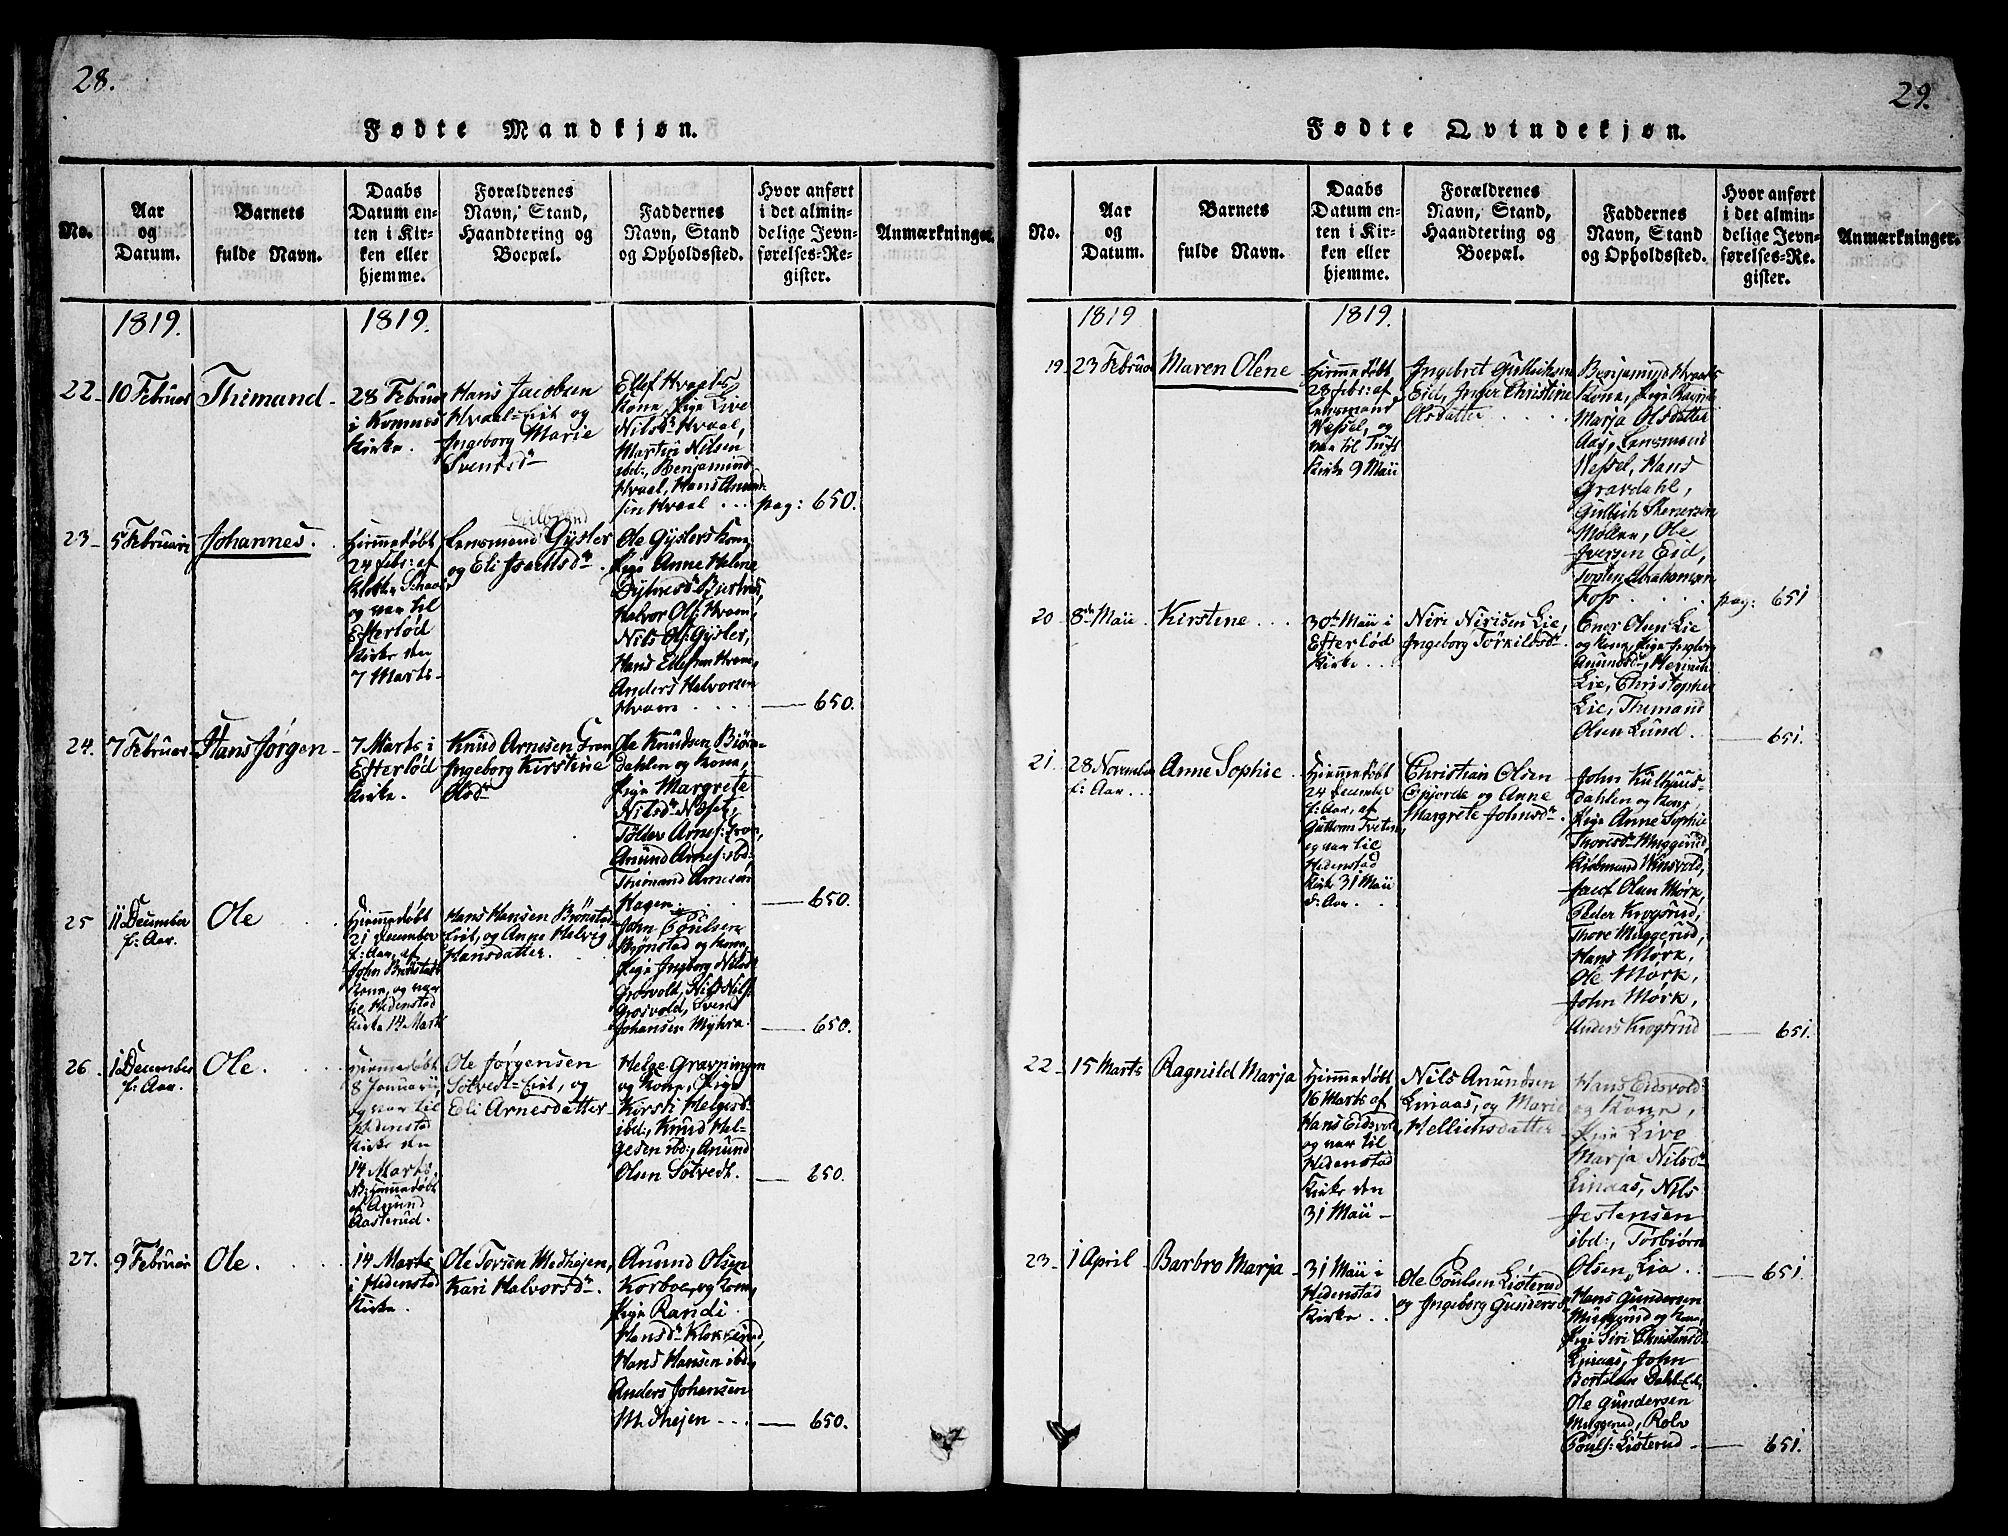 28.
Fødte Mandkjøn.
No.
Aar
og
Datum.
Barnets
fulde Navn.
Daabs
Datum en-
ten i Kir-
ken eller
hjemme.
Forældrenes
Navn, Stand,
Haandtering og
Boepæl.
Faddernes
Navn, Stand
og Opholdssted.
Hvor anført
i det almin-
delige Jevn-
førelses-Re-
gister.
Anmærkninger.
1819.
1819.
22
10 Februar
Thimand
28 Februar
i Komnes
Kirke.
Hans Jacobsen
Hvaal-Eiet og
Ingeborg Marie
Svendsd
Elef Hvaales
Kone, Pige Live
Nilsd Hvaal,
Martin Nilsen
ibd:, Benjamin
Hvaal, Hans Amund-
sen Hvaal
pag: 650.
23
5 Februari
Johannes.
Hiemmedøbt
24 Febr: af
og var til
Efterlød
Kirke den
7 Marts
Lensmand Gysler
og Eli
Ole Gyslers Kone,
Pige Anne Helene
Halvor Ols: Hvam,
Nils Ols: Gysler,
Hans Ellefsen Hvam,
Anders Halvorsen
Hvam
650.
24.
7 Februar
Hans Jørgen
7 Marts i
Efterlød
Kirke.
Knud Arnesen Gran
Ingeborg Kirstine
Olsd
Ole Knudsen Biørn-
dahlen og Kone,
Pige Margrete
Nilsd
Arnes: Gran,
Amund Arnes: ibd
Thimand Arnesen
Hagen.
650.
25
11 December
f: Aar.
Ole
Hiemmedøbt
21 December
f: Aar, af
John Brønstad
Kone, og var
til Hedenstad
Kirke 14 Marts
Hans Hansen Brønstad
Eiet, og Anne Helvig
Hansdatter.
John Poulsen
Brønstad og Kone,
Pige Ingeborg Nilsd
Grosvold, Nils Nils:
Grosvold, Svend
Johansen Myhra.
650.
26
1 December
f: Aar.
Ole.
Hiemmedøbt
8 Januarii,
og var til
Hedenstad
Kirke den
14 Marts,
NB: Hiemmedøbt
af Amund
Aasterud.
Ole Jørgensen
Sotvedt-Eiet, og
Eli Arnesdatter
Helge Gravningen
og Kone, Pige
Kirsti Helgesd:
ibd:, Knud Hel-
gesen ibd:, Amund
Olsen Sotvedt.
650.
27.
9 Februar
Ole.
14 Marts
i Hedenstad
Kirke.
Ole Torsen Medhejen,
Kari Halvorsd
Amund Olsen
Korboe, og Kone,
Pige Randi
Hansd Klokkerud,
Hans Hansen ibd,
Anders Johansen
Medhejen
650.
29.
Fødte Qvindekjøn.
No.
Aar
og
Datum.
Barnets
fulde Navn.
Daabs
Datum en-
ten i Kir-
ken eller
hjemme.
Forældrenes
Navn, Stand,
Haandtering og
Boepæl.
Faddernes
Navn, Stand
og Opholdssted.
Hvor anført
i det almin-
delige Jevn-
førelses-Re-
gister.
Anmærkninger.
1819
1819.
19
23 Februar
Maren Olene
Hiemmedøbt
28 Febr: af
Lensmand
Wessel, og
var til Tuft
Kirke 9 Maii
Ingebret Gullichsen
Eid, Inger Christine
Olsdatter
Benjamin Hvaals
Kone, Pige
Marja Olsdatter
Aas, Lensmand
Wessel, Hans
Gravdahl,
Gullich Stenersen
Moleen, Ole
Iversen Eid,
Torsten Abrahamsen
Foss
pag: 651
20
8de Maii
Kirstine
30te Maii i
Efterlød
Kirke
Niri Nirisen Lie,
Ingeborg Torkildsd
Ener Olsen Lie
og Kone, Pige Ingeborg
Amundsd,
Lie, Christopher
Lie, Thimand
Olsen Lund.
651.
21.
28 November
f: Aar
Anne Sophie
Hiemmedøbt
24 December
f: Aar, af
Guttorm Tveten,
og var til
Hedenstad
Kirke 31 Maii
d: Aar
Christian Olsen
og Anne
Margrete Johnsd
John Kulhuus-
dahlen og Kone,
Pige Anne Sophie
Thoresd Muggerud,
Kiøbmand Winsvold,
Jacob Olsen Mørk,
Peder Krogsrud,
Thore Muggerud,
Hans Mørk,
Ole Mørk,
John Mørk,
Anders Krogsrud
651.
22
15 Marts
Ragnild Marja
Hiemmedøbt
16 Marts af
Hans Eidsvold
og var til
Hedenstad
Kirke den
31 Maii
Nils Amundsen
Linaas, og Marie
Hellichsdatter
Hans Eidsvold
og Kone,
Pige Live
Marja Nilsd
Linaas, Nils
Jestensen
ibd:, Torbiørn
Olsen Lia
651.
23
1 April
Barbro Marja
31 Maii i
Hedenstad
Kirke
Ole Poulsen Listerud
og Ingeborg Gundersd
Hans Gundersen
Muggerud og Kone,
Pige Siri Christensd
Linaas, John
Ole Gundersen
Muggerud, Rolv
Pouls: Listerud
651.